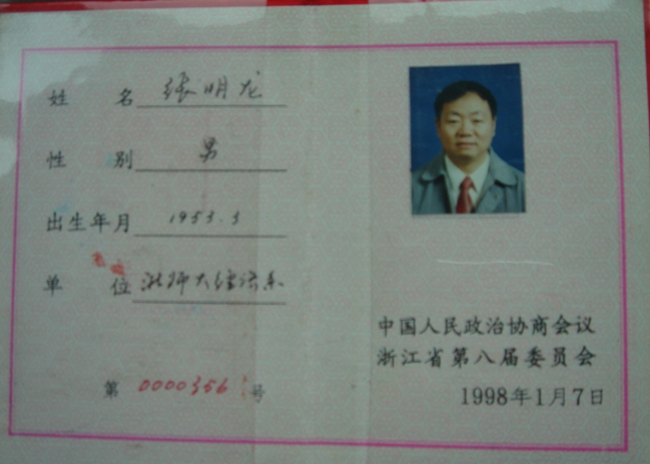 姓 名 张明龙
性 别 男
出生年月 1953.3
单 位 浙师大经济系
第 0000356 号
中国人民政治协商会议
浙江省第八届委员会
1998年1月7日